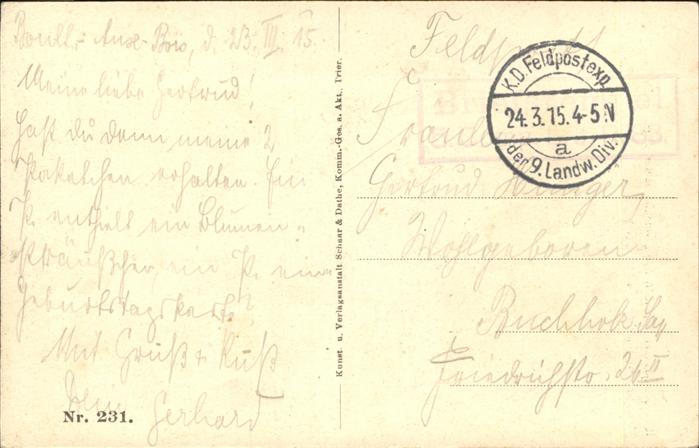 Boult-aux-Bois, d. 23. III. 15.
Meine liebe Gertrud!
Hast du denn meine 2
Paketchen erhalten. Ein
P. enthielt ein Blumen-
sträußchen, ein P. eine
Geburtstagskarte?
Mit Gruß & Kuß
Dein Gerhard
Nr. 231.
Kunst u. Verlagsanstalt Schaar & Dathe, Komm.-Ges. a. Akt. Trier.
Feldpost
K.D. Feldpostexp.
24.3.15.4-5N
a
der 9. Landw. Div.
Gertrud
Wohlgeboren
Friedrichstr. 26 II